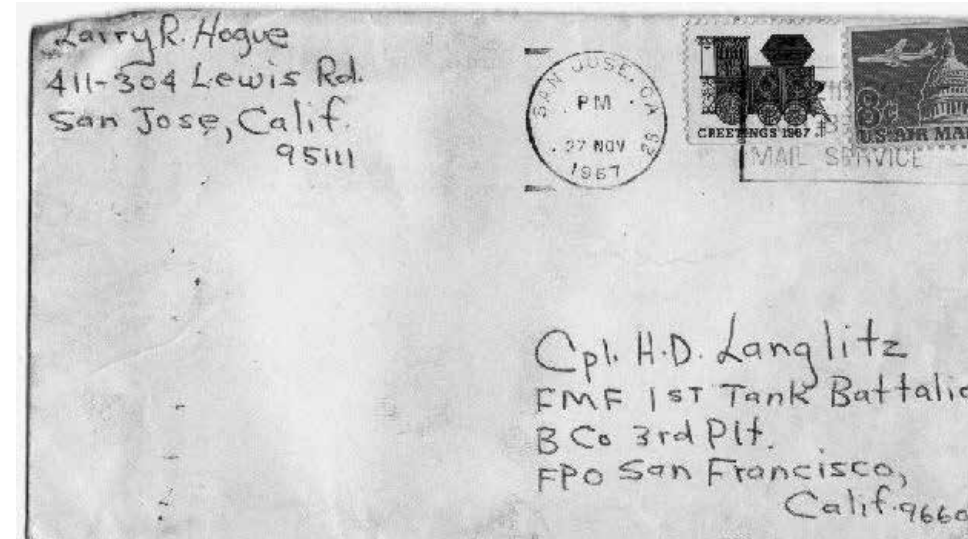 Larry R. Hogue
411-304 Lewis Rd.
San Jose, Calif.
95111
SAN JOSE, CA
PM
27 NOV
1967
GREETINGS 1967
8¢
U.S. AIR MAI
MAIL SERVICE
Cpl. H.D. Langlitz
FMF 1ST Tank Battalio
B Co 3rd Plt.
FPO San Francisco,
Calif. 9660